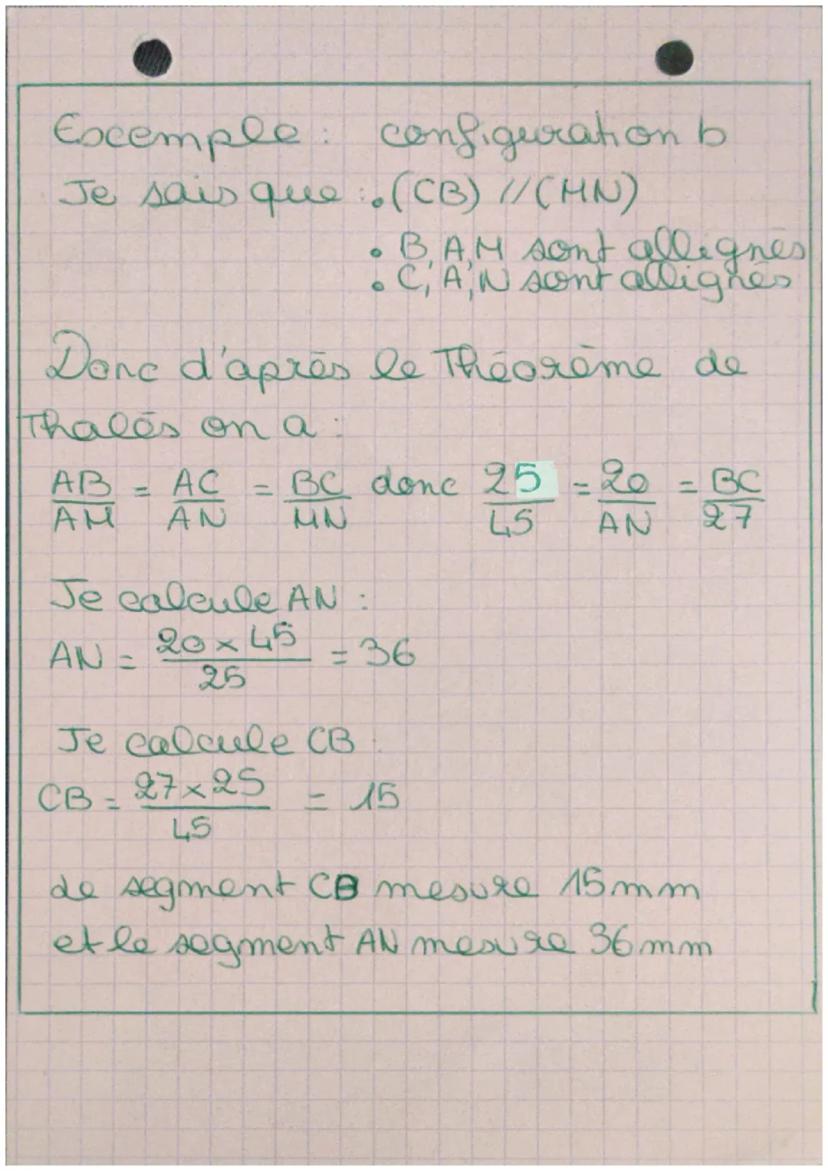 Excemple : configuration b
Je sais que : • (CB) // (MN)
• B, A, M sont allignés
• C, A, N sont allignés
Donc d'après le Théorème de
Thalès on a :
AB/AM = AC/AN = BC/MN donc 25/45 = 20/AN = BC/27
Je calcule AN :
AN = 20 × 45 / 25 = 36
Je calcule CB :
CB = 27 × 25 / 45 = 15
Le segment CB mesure 15 mm
et le segment AN mesure 36 mm